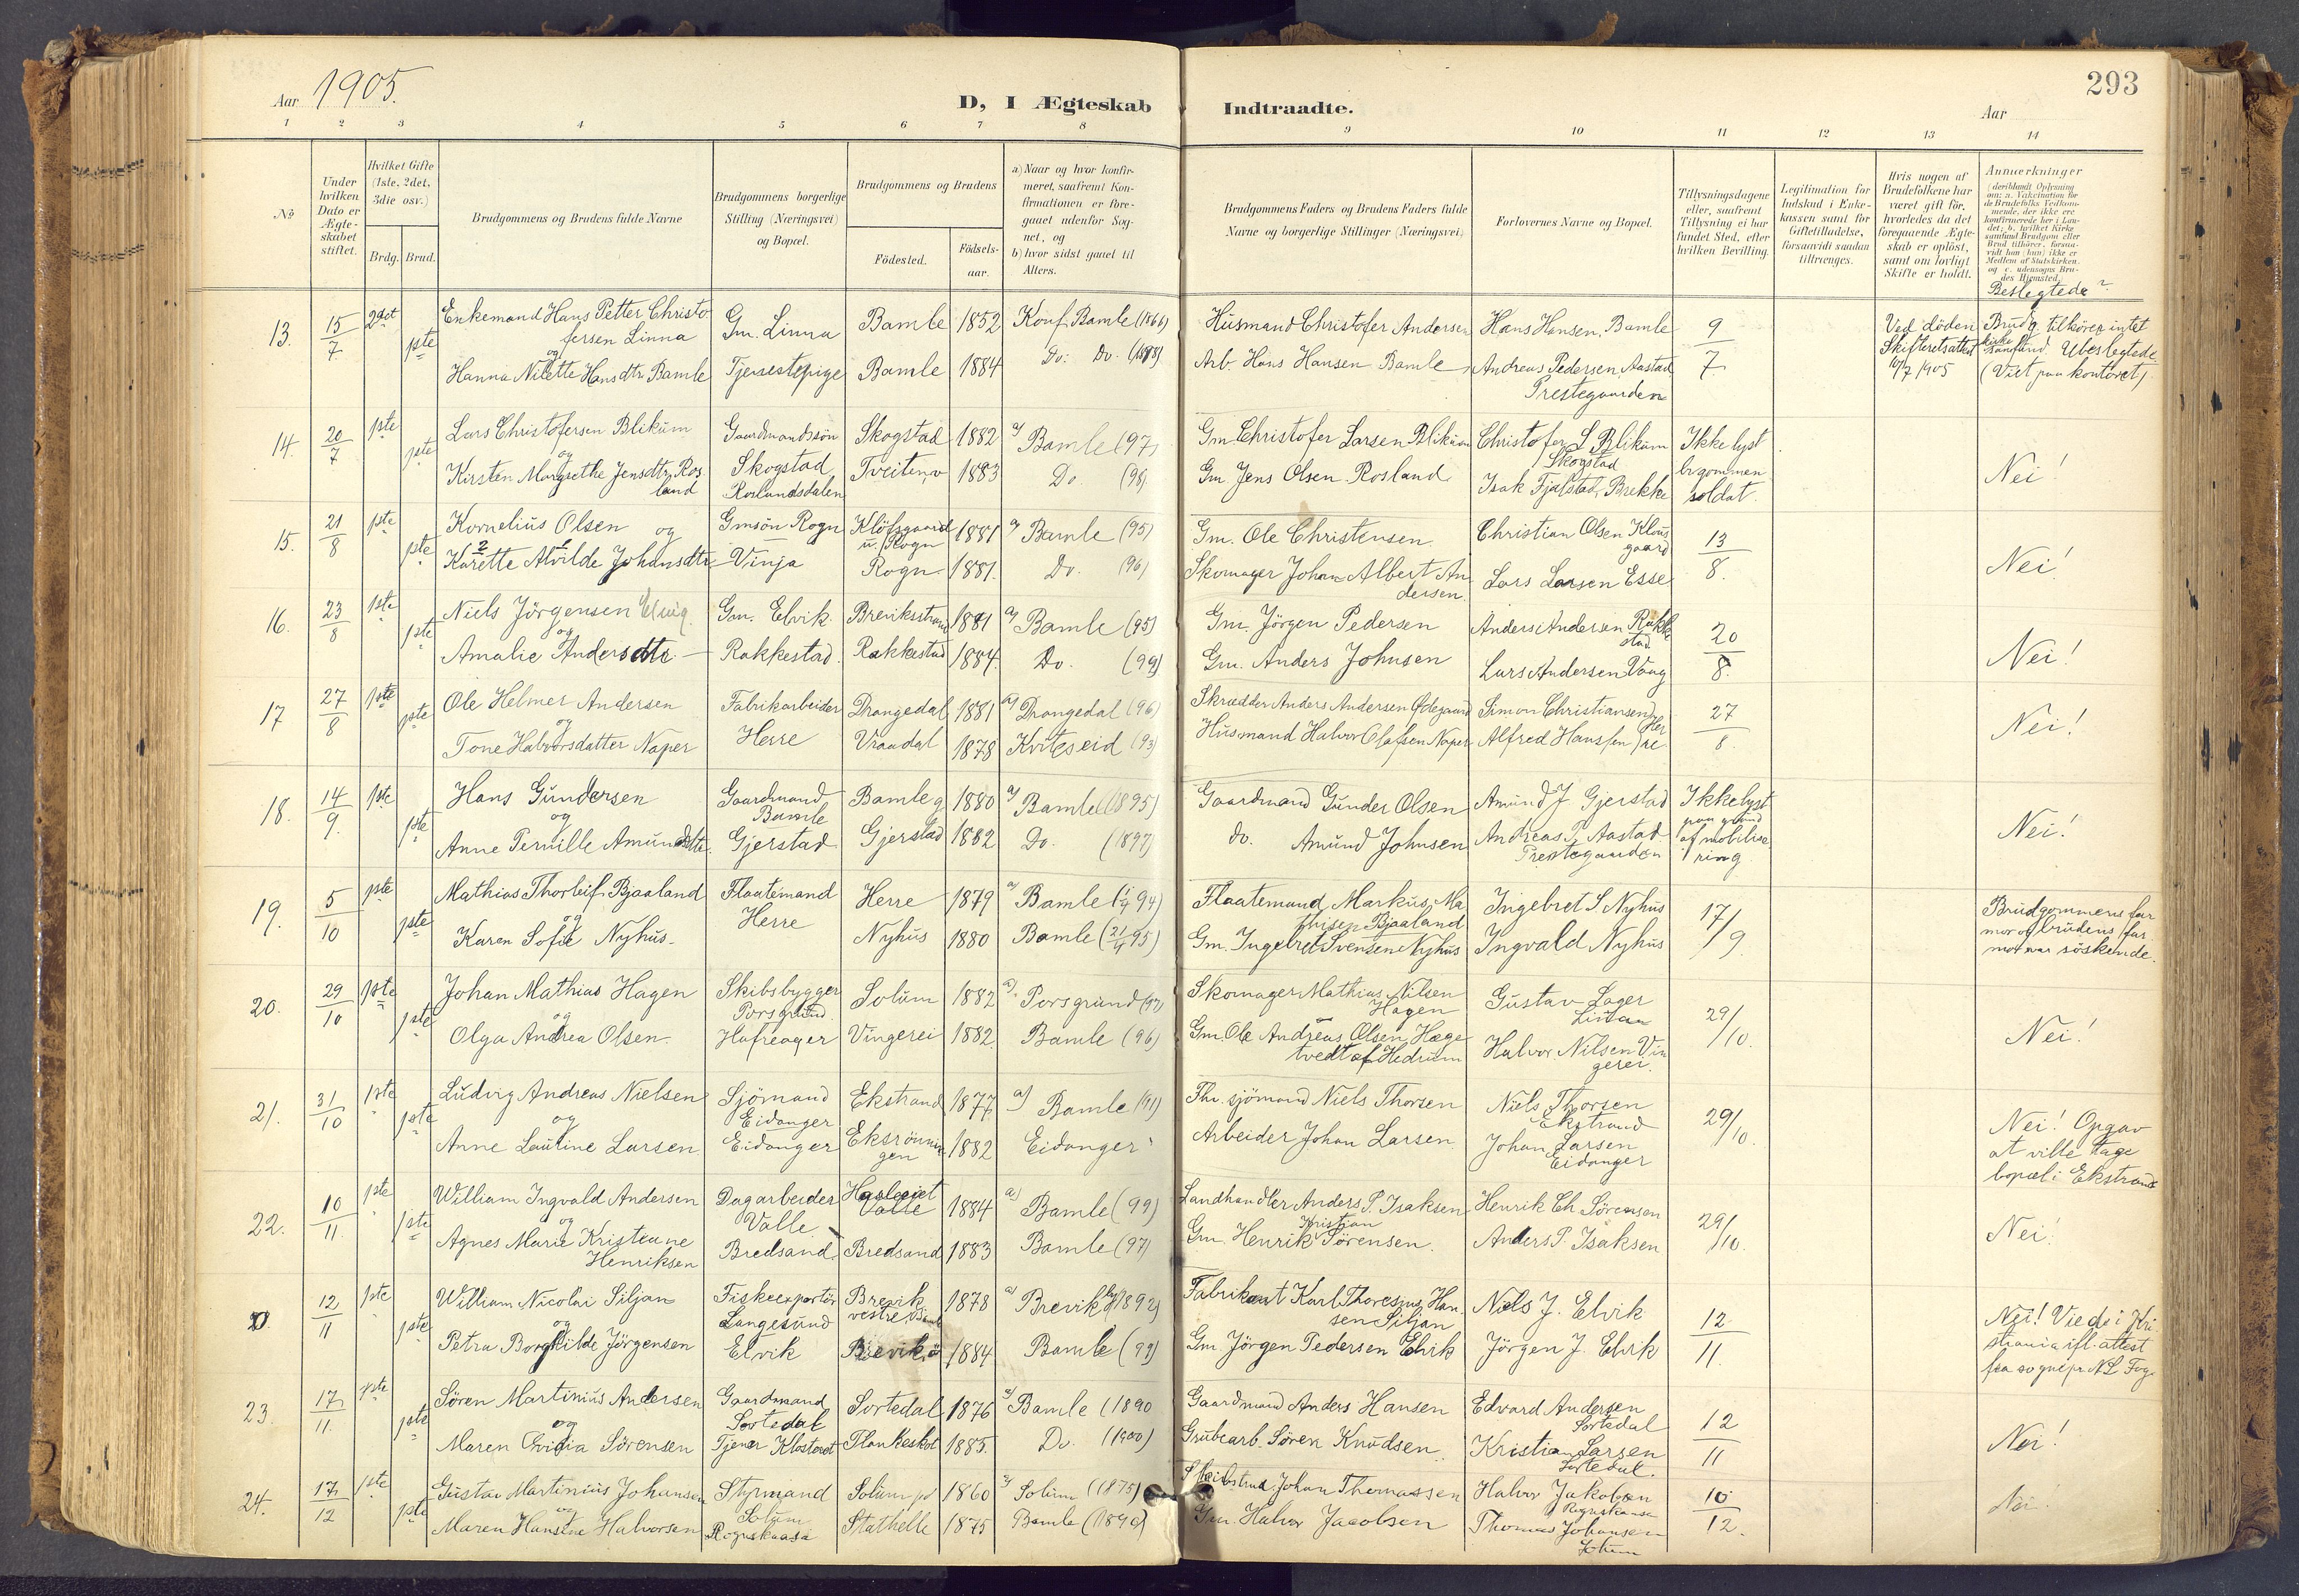 Aar 1905.
D, I Ægteskab Indtraadte.
Aar
293
1 2 3 4 5 6 7 8 9 10 11 12 13 14
No
Under hvilken Dato er Ægteskabet stiftet.
Hvilket Gifte (1ste, 2det, 3die osv.)
Brdg. Brud.
Brudgommens og Brudens fulde Navne
Brudgommens borgerlige Stilling (Næringsvei) og Bopæl.
Brudgommens og Brudens
Födested.
Födsels-aar.
a) Naar og hvor konfirmeret, saafremt Konfirmationen er foregaaet udenfor Sognet, og
b) hvor sidst gaaet til Alters.
Brudgommens Faders og Brudens Faders fulde Navne og borgerlige Stillinger (Næringsvei)
Forlovernes Navne og Bopæl.
Tillysningsdagene eller, saafremt Tillysning ei har fundet Sted, efter hvilken Bevilling.
Legitimation for Indskud i Enkekassen samt for Giftetilladelse, forsaavidt saadan tiltrænges.
Hvis nogen af Brudefolkene har været gift för, hvorledes da det foregaaende Ægteskab er oplöst, samt om lovligt Skifte er holdt.
Anmærkninger
Beslegtede?
13. 15/7 2det Enkemand Hans Petter Christofersen Linna Gm. Linna Bamle 1852 Konf. Bamle (1866) Husmand Christofer Andersen Hans Hansen, Bamle 9/7 Ved döden Skifteretsattest 10/7 1905 Brudg. tilhörer intet kirkesamfund Ubeslegtede
1ste og Hanna Nilette Hansdtr. Bamle Tjenestepige Bamle 1884 Do: Do. Arb. Hans Hansen Bamle Andreas Pedersen Aastad Prestegaarden (Viet paa kontoret)
14. 20/7 1ste Lars Christofersen Blikum Gaardmandssön Skogstad 1882 a) Bamle (97) Gm. Christofer Larsen Blikum Christofer L. Blikum Skogstad Ikke lyst brgommen soldat. Nei!
1ste og Kirsten Margrethe Jensdtr. Rosland Skogstad Roslandsdalen Tveiten 1883 Do. (98) Gm Jens Olsen Rosland Isak Fjalstad, Brekke
15. 21/8 1ste Kornelius Olsen og Gmsön Rogn Klöfsgaard u. Rogn 1881 a) Bamle (95) Gm. Ole Christensen Christian Olsen Klovsgaard 13/8. Nei!
1ste Karette Alvilde Johansdtr Vinja Rogn 1881. Do. (96) Skomager Johan Albert Andersen. Lars Larsen Esse
16. 23/8 1ste Niels Jörgensen Elvig Gm. Elvik Breviksstrand 1881 a) Bamle (95) Gm. Jörgen Pedersen Anders Andersen Rakkestad 20/8. Nei!
1ste og Amalie Andersdtr. Rakkestad. Rakkestad 1884. Do. (99) Gm. Anders Johnsen Lars Andersen Vaag
17 27/8 1ste Ole Helmer Andersen Fabrikarbeider Drangedal 1881 a) Drangedal (96) Skrædder Anders Andersen Ødegaard Simon Christiansen Herre 27/8. Nei!
1ste og Tone Halvorsdatter Naper Herre Vraadal 1878 Kviteseid (93) Husmand Halvor Olafsen Naper Alfred Hanssen
18. 14/9. 1ste Hans Gundersen Gaardmand Bamle Bamle 1880 a) Bamle (1895) Gaardmand Gunder Olsen Amund J Gjerstad Ikke lyst paa grund af mobilisering Nei!
1ste og Anne Pernille Amundsdtr. Gjerstad Gjerstad 1882 Do. (1897) do. Amund Johnsen Andreas P. Aastad Prestegaarden
19. 5/10 1ste Mathias Thorleif Bjaaland Flaatemand Herre Herre 1879 a) Bamle (94) Flaatemand Markus Mathisen Bjaaland Ingebret S. Nyhus 17/9. Brudgommens farmor og brudens farmor var söskende.
1ste og Karen Sofie Nyhus Nyhus 1880 Bamle (95) Gm. Ingebret Svensen Nyhus Ingvald Nyhus
20. 29/10 1ste Johan Mathias Hagen Skibsbygger Porsgrund Solum 1882 a) Porsgrund (97) Skomager Mathias Nilsen Hagen Gustav Lager 29/10. Nei!
1ste og Olga Andrea Olsen Hafreager Vingerei 1882. Bamle (96) Gm. Ole Andreas Olsen Hagetvedt af Hedrum Halvor Nilsen Vingerei.
21. 31/10 1ste Ludvig Andreas Nielsen Sjömand Eidanger Ekstrand 1877 a) Bamle (91) Fhv. sjömand Niels Thorsen Niels Thorsen Ekstrand 29/10. Nei! Opgav at ville tage bopæl i Ekstrand
1ste og Anne Lautine Larsen Eidanger 1882 Eidanger Arbeider Johan Larsen Johan Larsen Eidanger
22. 10/11 1ste William Ingvald Andersen Dagarbeider Valle Valle 1884 a) Bamle (99) Landhandler Anders P. Isaksen Henrik Ch. Sörensen 29/10. Nei!
1ste og Agnes Marie Kristeane Henriksen Bredsand Bredsand 1883 Bamle (97) Gm. Henrik Kristian Sörensen. Anders P. Isaksen
12/11 1ste William Nicolai Siljan Fiskeexportör Langesund Brevik 1878 a) Brevik (1892) Fabrikant Karl Thoresius Hansen Siljan Niels J. Elvik 12/11. Nei! Viede i Kristiania ifl. attest fra sognepr. N L Fog
1ste og Petra Borghilde Jörgensen Elvik 1884 Bamle (99) Gm. Jörgen Pedersen Elvik Jörgen J. Elvik
23. 17/11. 1ste Sören Martinius Andersen Gaardmand Sortedal Sortedal 1876 a) Bamle (1890 Gaardmand Anders Hansen Edvard Andersen Sortedal 12/11 Nei!
1ste og Maren Sörensen Tjener Klosteret Flankeskot 1885. Do. (1900) Grubearb. Sören Knudsen Kristian Larsen Sortedal.
24. 17/12 1ste Gustav Martinius Johansen Styrmand Solum Solum 1860 a) Solum (1875) Johan Thomassen Halvor Jakobsen Rognskaasa 10/12. Nei.
1ste og Maren Hansine Halvorsen Rognskaasa Stathelle 1875 Bamle (1890) Gm. Halvor Jacobsen Thomas Johansen Solum